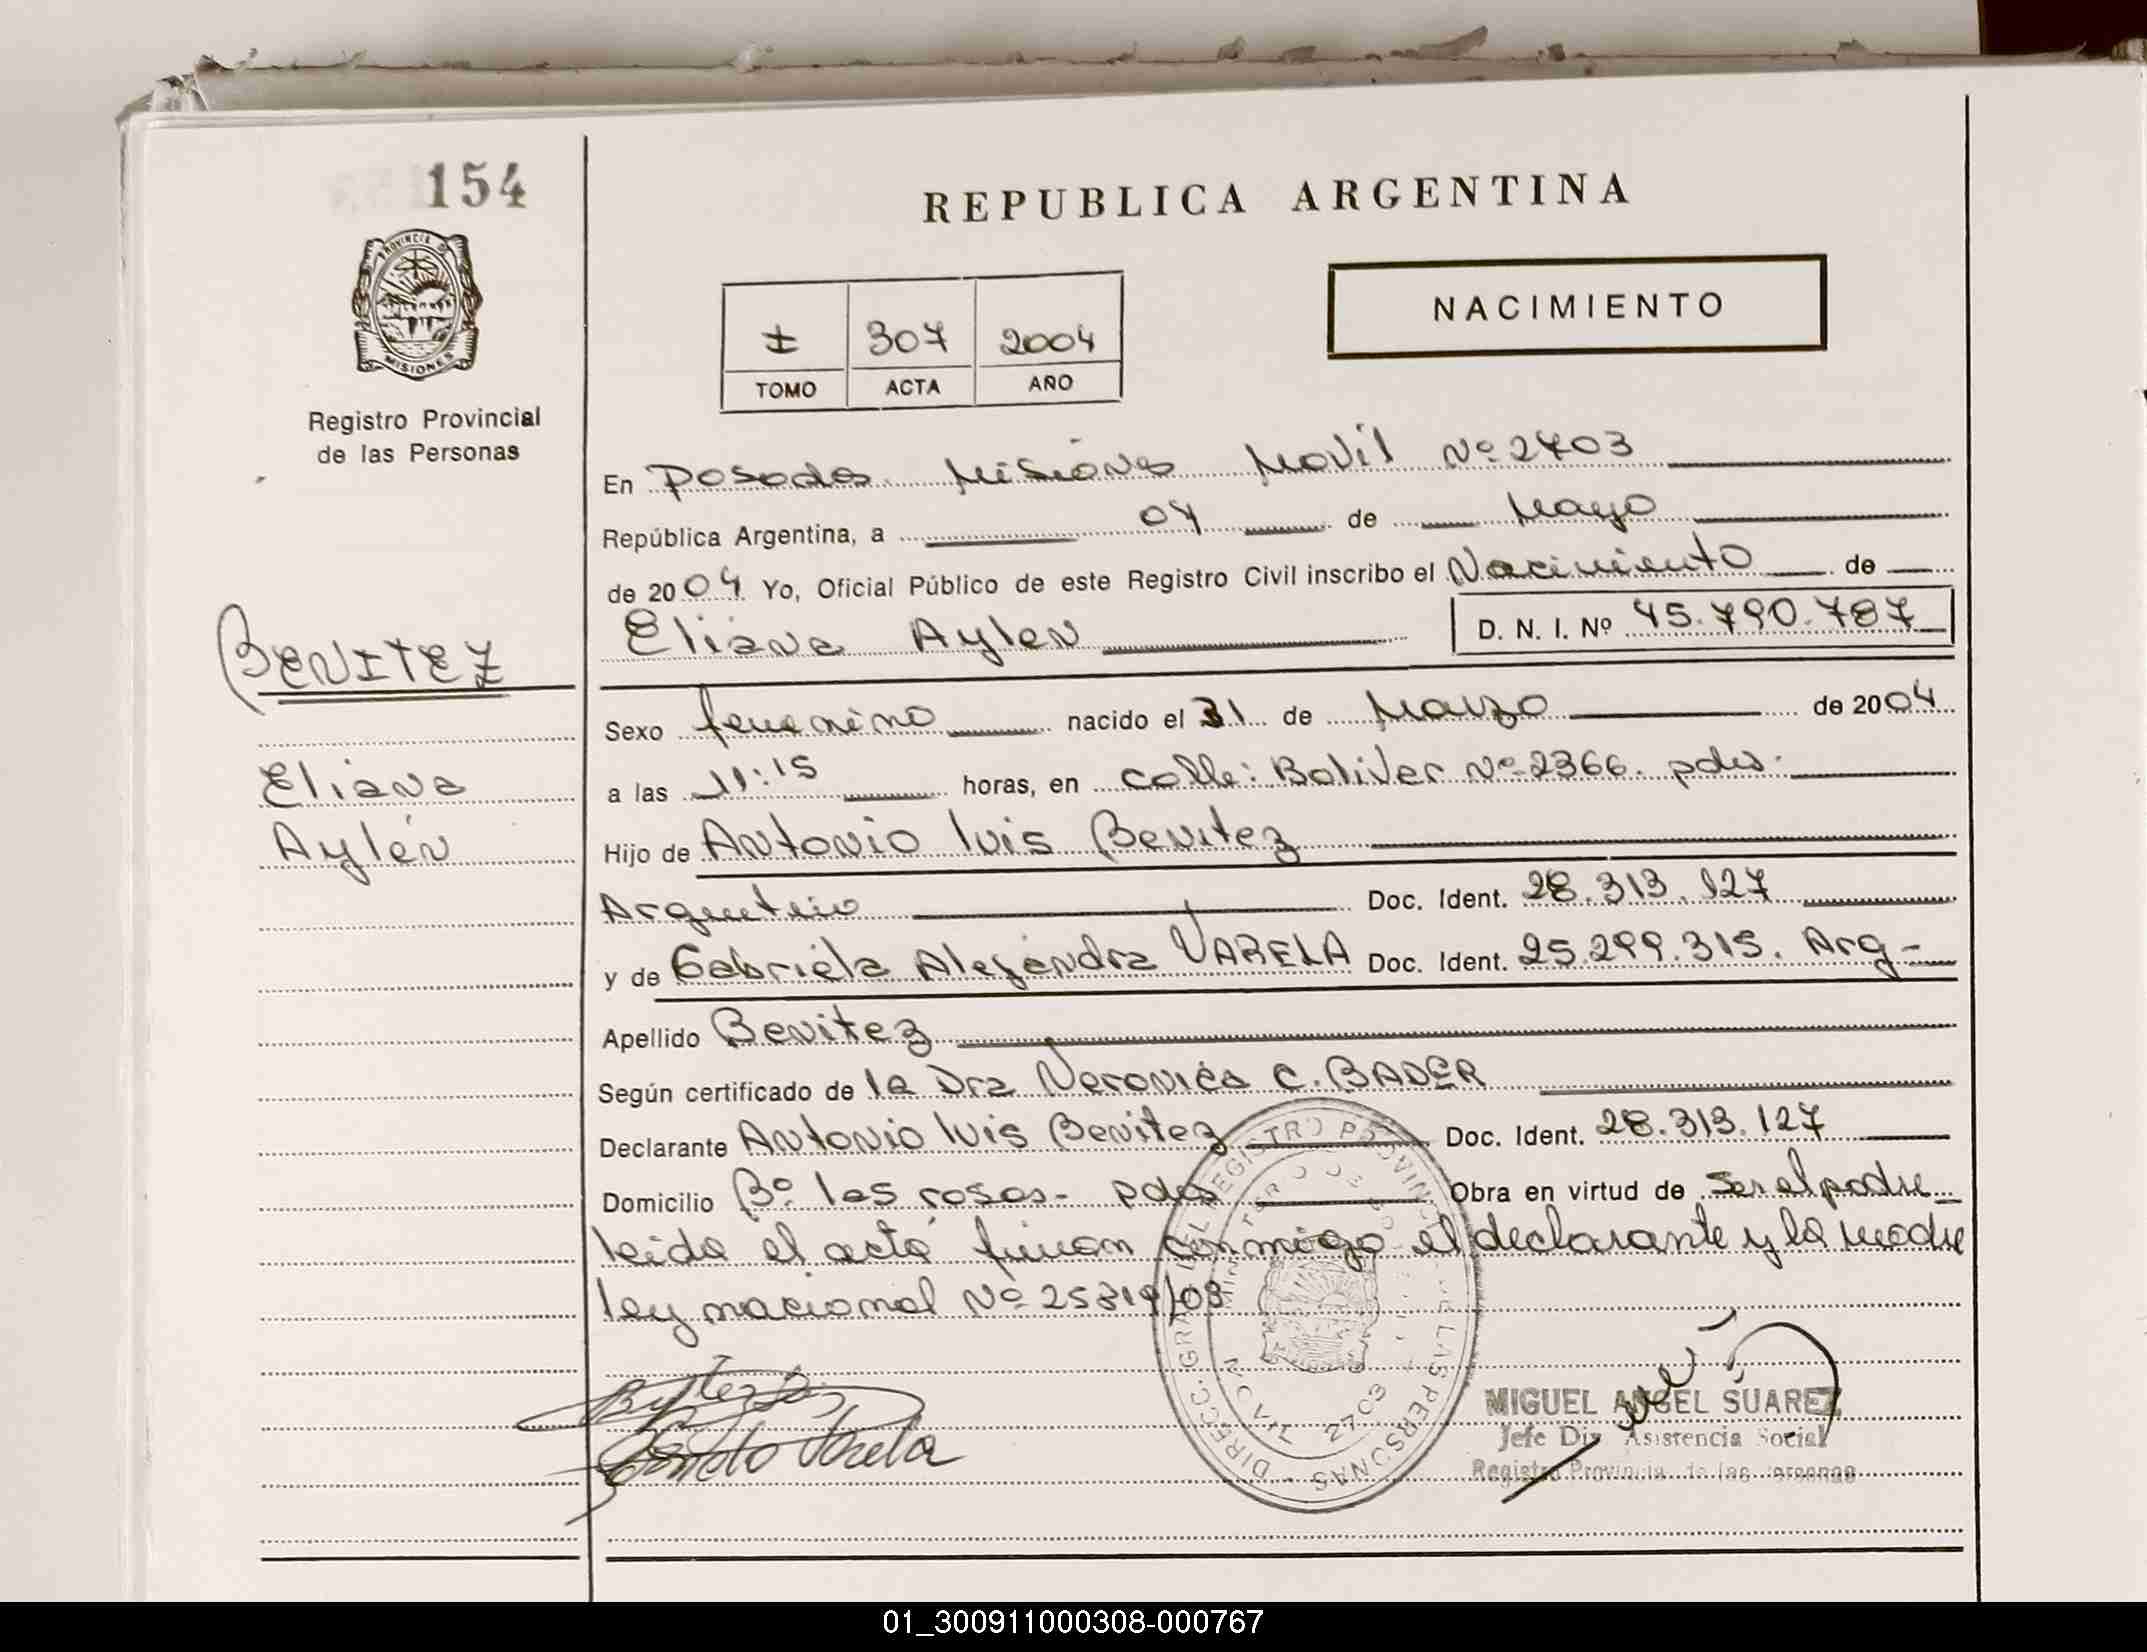 154
REPUBLICA ARGENTINA
NACIMIENTO
I 307 2004
TOMO ACTA AÑO
PROVINCIA DE MISIONES
Registro Provincial
de las Personas
En Posadas Misiones Movil Nº 2703
República Argentina, a 04 de Mayo
de 2004 Yo, Oficial Público de este Registro Civil inscribo el Nacimiento de
Eliana Aylen D. N. I. Nº 45.790.787
BENITEZ
Eliana
Aylén
Sexo femenino nacido el 31 de Marzo de 2004
a las 11:15 horas, en calle: Bolivar Nº 2366. pdas.
Hijo de Antonio luis Benitez
Argentino Doc. Ident. 28.313.127
y de Gabriela Alejandra VARELA Doc. Ident. 25.299.315. Arg-
Apellido Benitez
Según certificado de la Dra Veronica C. BADER
Declarante Antonio luis Benitez Doc. Ident. 28.313.127
Domicilio Bº las rosas- pdas Obra en virtud de ser el padre
leida el acta firman conmigo el declarante y la madre
ley nacional Nº 25819/03
DIRECC. GRAL. DEL REGISTRO PROVINCIAL DE LAS PERSONAS
2703
MIGUEL ANGEL SUAREZ
Jefe Div Asistencia Social
Registro Provincial de las Personas
01_300911000308-000767